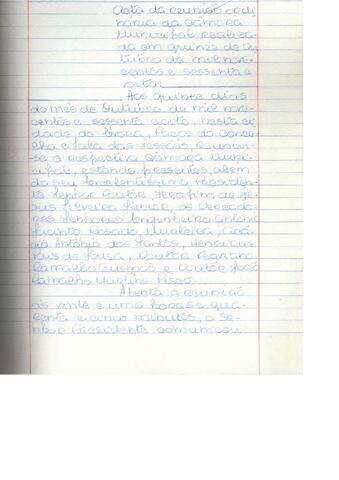 Acta da reunião ordi
nária da Câmara
Municipal realiza-
da em quinze de Ou
tubro de mil nove-
centos e sessenta e
oito:
Aos quinze dias
do mês de Outubro de mil nove-
centos e sessenta e oito, nesta ci
dade, de Évora, Paços do Conce-
lho e sala das sessões, reuniu-
se a respectiva Câmara Muni-
cipal, estando presentes, além
do seu Excelentíssimo Presiden-
te Senhor Doutor, Serafim de Je-
sus Silveira Júnior, os Vereado-
res Senhores Engenheiro António
Rosado
António dos Santos, Henrique
de Sousa, Doutor
Ramalho e Doutor José
Ramalho Martins
Aberta a reunião
às vinte e uma horas e qua-
renta e cinco minutos, o Se-
nhor Presidente comunicou